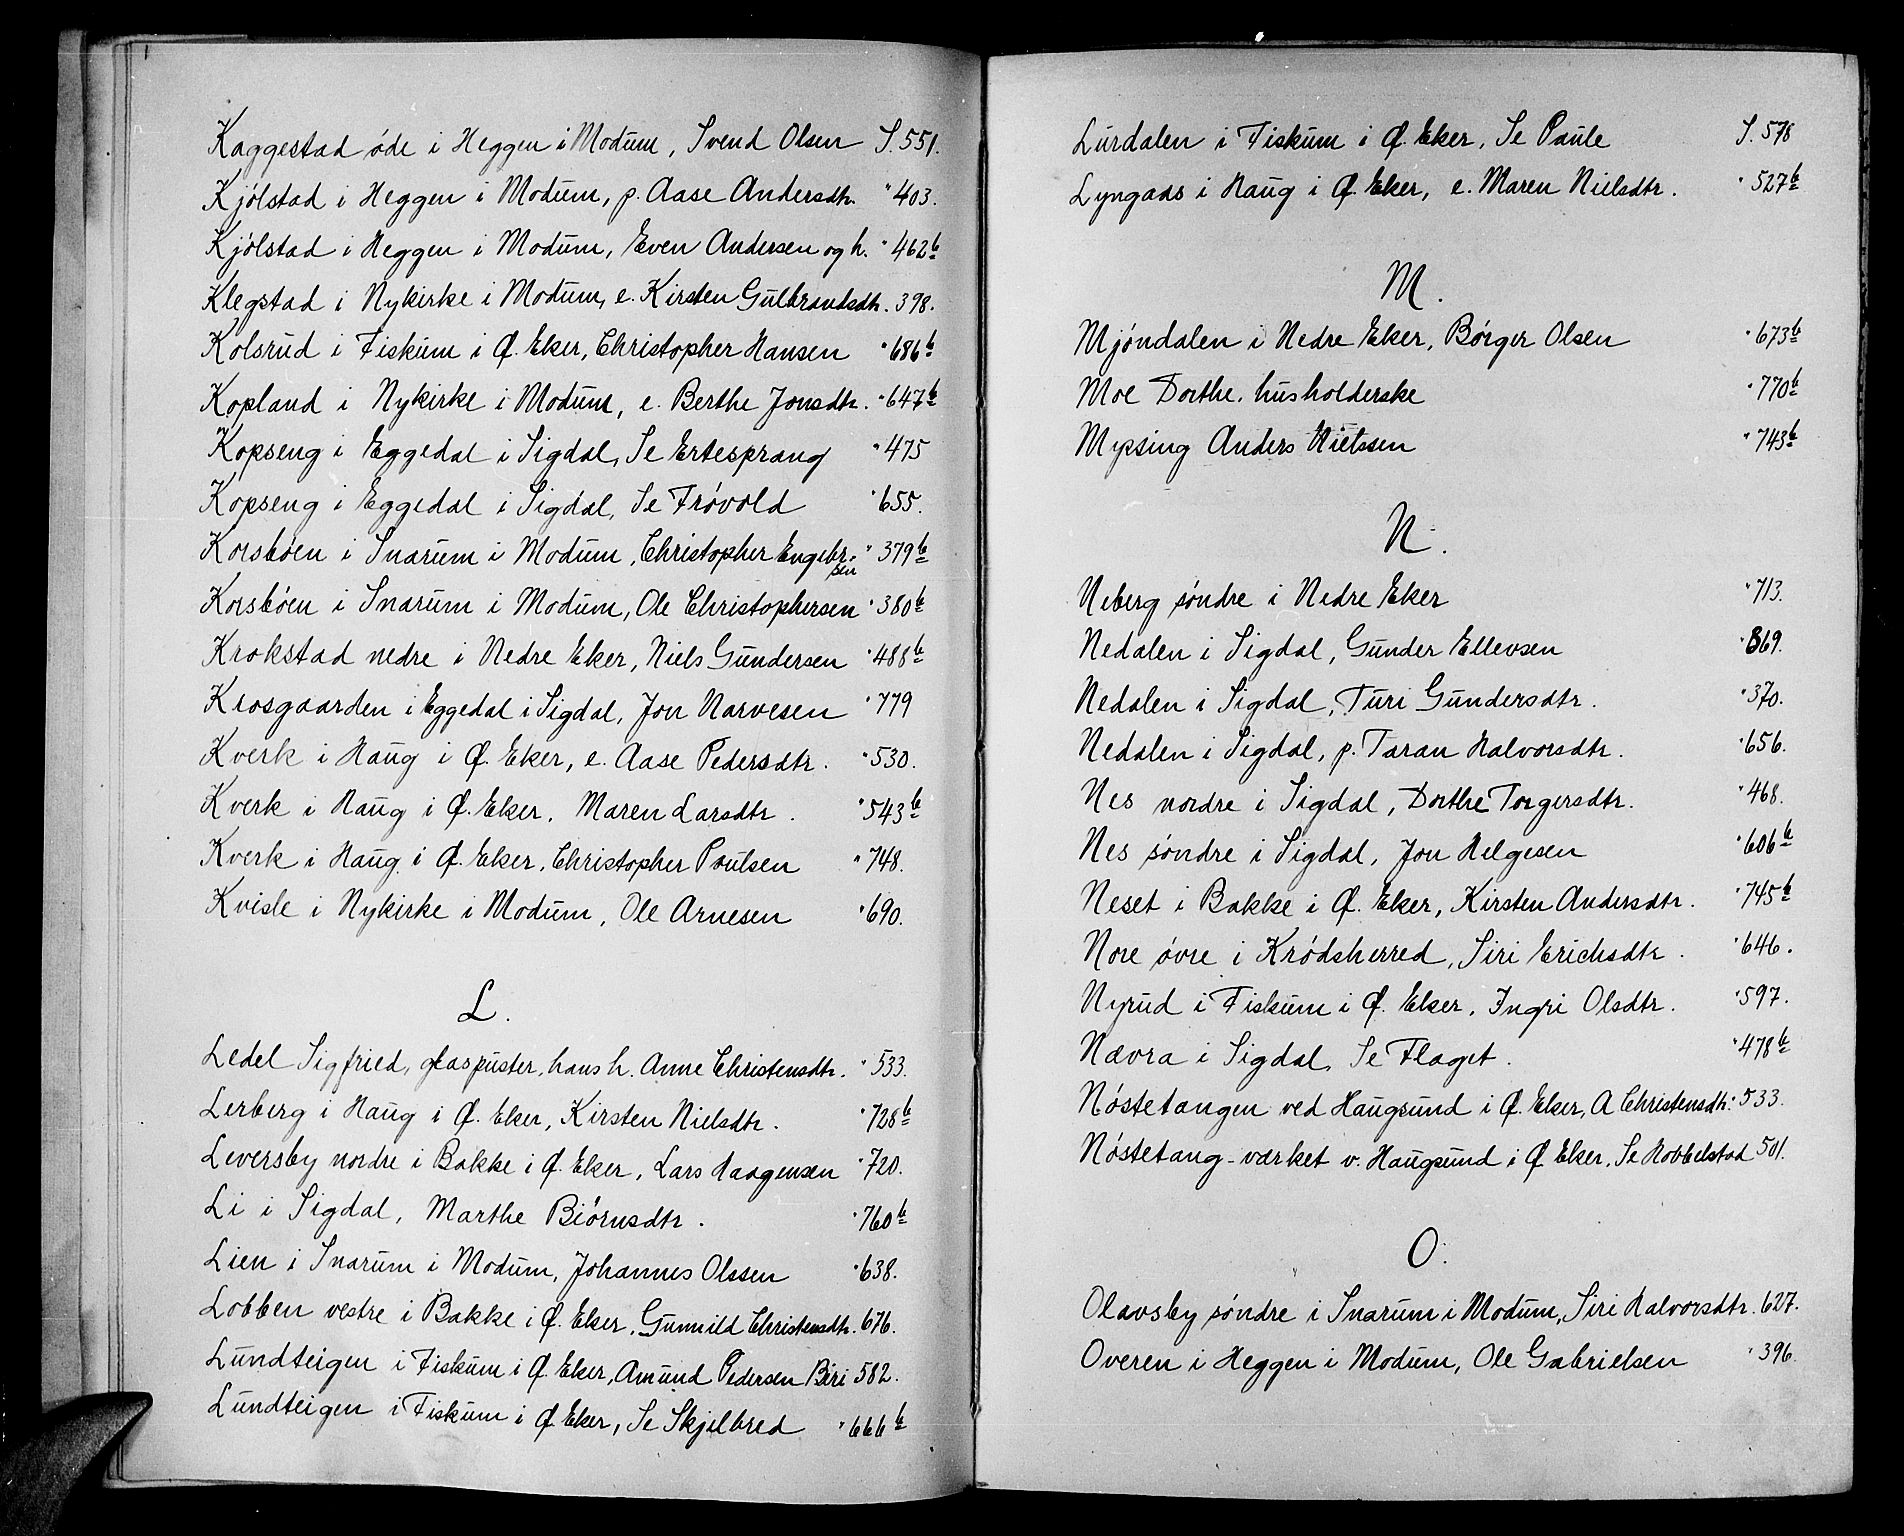 Kaggestad øde i Heggen i Modum, Svend Olsen S. 551.
Kjølstad i Heggen i Modum, p. Aase Andersdtr. " 403.
Kjølstad i Heggen i Modum, Even Andersen og h. " 462b
Klegstad i Nykirke i Modum, e. Kirsten Gulbrandsdtr. 398.
Kolsrud i Fiskum i Ø. Eker, Christopher Hansen " 686b
Kopland i Nykirke i Modum, e. Berthe Jonsdtr. " 647b
Kopseng i Eggedal i Sigdal, Se Ertesprang " 475
Kopseng i Eggedal i Sigdal, Se Frøvold " 655.
Korsbøen i Snarum i Modum, Christopher Engebr- " 379b
sen
Korsbøen i Snarum i Modum, Ole Christophersen " 380b
Krokstad nedre i Nedre Eker, Niels Gundersen " 488b
Krosgaarden i Eggedal i Sigdal, Jon Narvesen " 779
Kverk i Haug i Ø. Eker, e. Aase Pedersdtr. " 530.
Kverk i Haug i Ø. Eker, Maren Larsdtr. " 543b
Kverk i Haug i Ø. Eker, Christopher Poulsen " 748.
Kvisle i Nykirke i Modum, Ole Arnesen " 690.
L.
Ledel Sigfried, glaspuster, hans h. Anne Christensdtr. " 533.
Lerberg i Haug i Ø. Eker, Kirsten Nielsdtr. " 728b
Leversby nordre i Bakke i Ø. Eker, Lars Haagensen " 720.
Li i Sigdal, Marthe Biørnsdtr. " 760b
Lien i Snarum i Modum, Johannes Olssen " 638.
Lobben vestre i Bakke i Ø. Eker, Gunnild Christensdtr. 676.
Lundteigen i Fiskum i Ø. Eker, Amund Pedersen Biri 582.
Lundteigen i Fiskum i Ø. Eker, Se Skjelbred " 666b
Lurdalen i Fiskum i Ø. Eker, Se Paule S. 578
Lyngaas i Haug i Ø. Eker, e. Maren Nielsdtr. " 527b
M.
Mjøndalen i Nedre Eker, Børger Olsen " 673b
Moe Dorthe, husholderske " 770b
Mypsing Anders Nielssen " 743b
N.
Neberg søndre i Nedre Eker " 713.
Nedalen i Sigdal, Gunder Ellevsen " 369.
Nedalen i Sigdal, Turi Gundersdtr. " 370.
Nedalen i Sigdal, p. Taran Halvorsdtr. " 656.
Nes nordre i Sigdal, Dorthe Torgersdtr. " 468.
Nes søndre i Sigdal, Jon Helgesen " 606b
Neset i Bakke i Ø. Eker, Kirsten Andersdtr. " 745b
Nore øvre i Krødsherred, Siri Erichsdtr. " 646.
Nyrud i Fiskum i Ø. Eker, Ingri Olsdtr. " 597.
Nævra i Sigdal, Se Flaget. " 478b
Nøstetangen ved Haugsund i Ø. Eker, A Christensdtr. " 533.
Nøstetang-værket v. Haugsund i Ø Eker, Se Hobbelstad 501.
O.
Olavsby søndre i Snarum i Modum, Siri Halvorsdtr. 627.
Overen i Heggen i Modum, Ole Gabrielsen " 396.